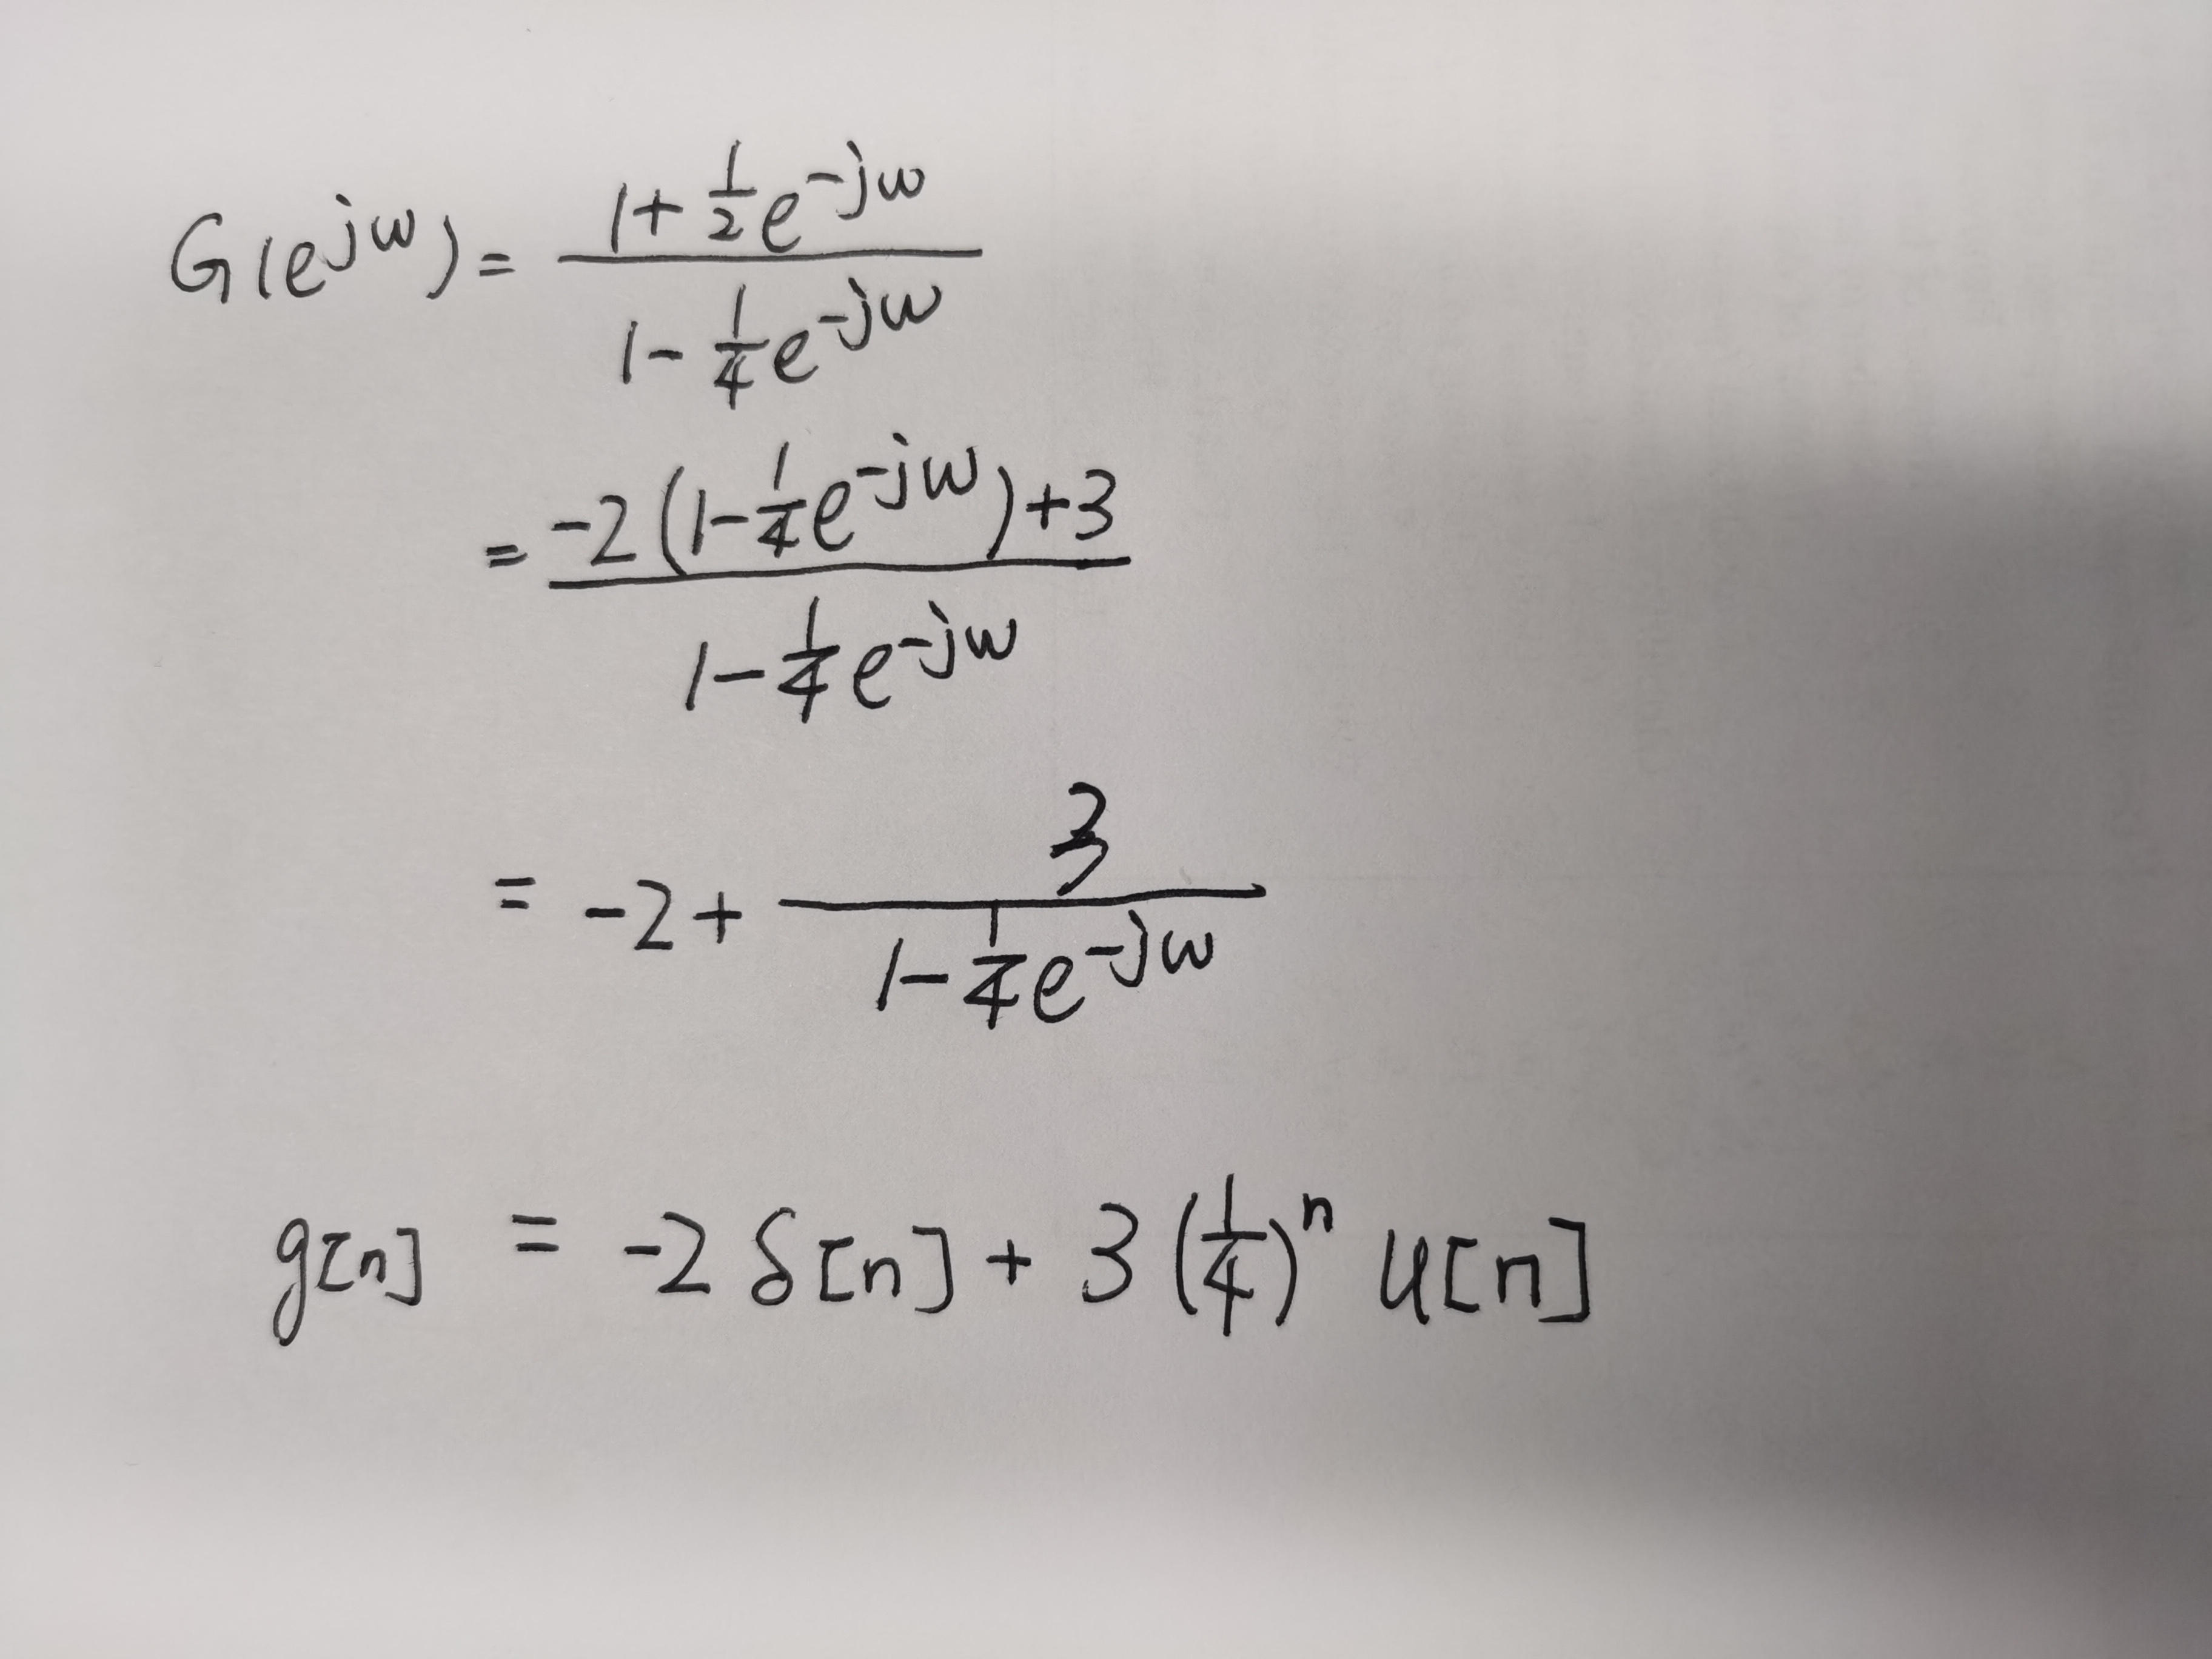 G(e^{jω}) = \frac{1+\frac{1}{2}e^{-jω}}{1-\frac{1}{4}e^{-jω}}
= \frac{-2(1-\frac{1}{4}e^{-jω})+3}{1-\frac{1}{4}e^{-jω}}
= -2+\frac{3}{1-\frac{1}{4}e^{-jω}}
g[n] = -2δ[n]+3(\frac{1}{4})^n u[n]